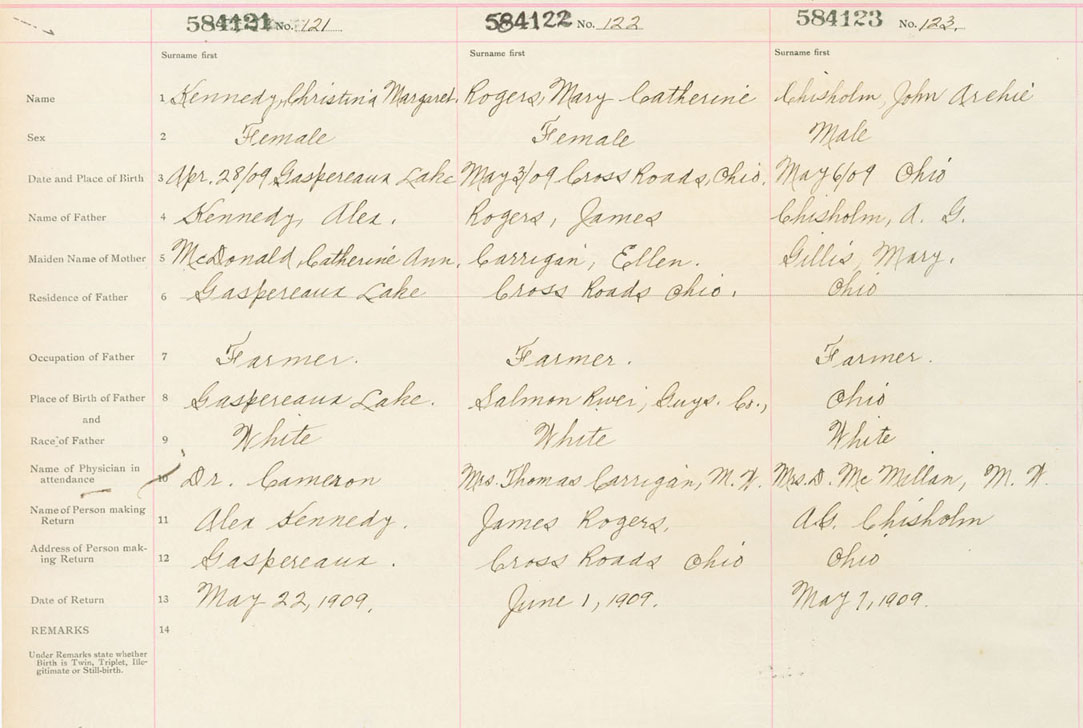 584121 No. 121 584122 No. 122 584123 No. 123.
Surname first Surname first Surname first
Name 1 Kennedy, Christina Margaret. Rogers, Mary Catherine Chisholm, John Archie
Sex 2 Female Female Male
Date and Place of Birth 3 Apr. 28/09 Gaspereaux Lake May 3/09 Cross Roads, Ohio. May 6/09 Ohio
Name of Father 4 Kennedy, Alex. Rogers, James Chisholm, A. G.
Maiden Name of Mother 5 McDonald, Catherine Ann. Carrigan, Ellen. Gillis, Mary.
Residence of Father 6 Gaspereaux Lake Cross Roads Ohio. Ohio
Occupation of Father 7 Farmer. Farmer. Farmer.
Place of Birth of Father 8 Gaspereaux Lake. Salmon River, Guys. Co., Ohio
and
Race of Father 9 White White White
Name of Physician in
attendance 10 Dr. Cameron Mrs. Thomas Carrigan, M. W. Mrs. D. McMillan, M. W.
Name of Person making
Return 11 Alex Kennedy. James Rogers. A.G. Chisholm
Address of Person mak-
ing Return 12 Gaspereaux. Cross Roads Ohio Ohio
Date of Return 13 May 22, 1909. June 1, 1909. May 7, 1909.
REMARKS 14
Under Remarks state whether
Birth is Twin, Triplet, Ille-
gitimate or Still-birth.